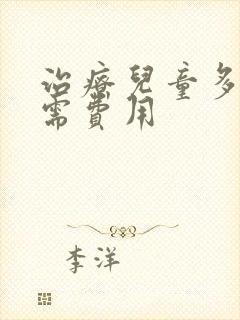 治療兒童多
需費用
李洋